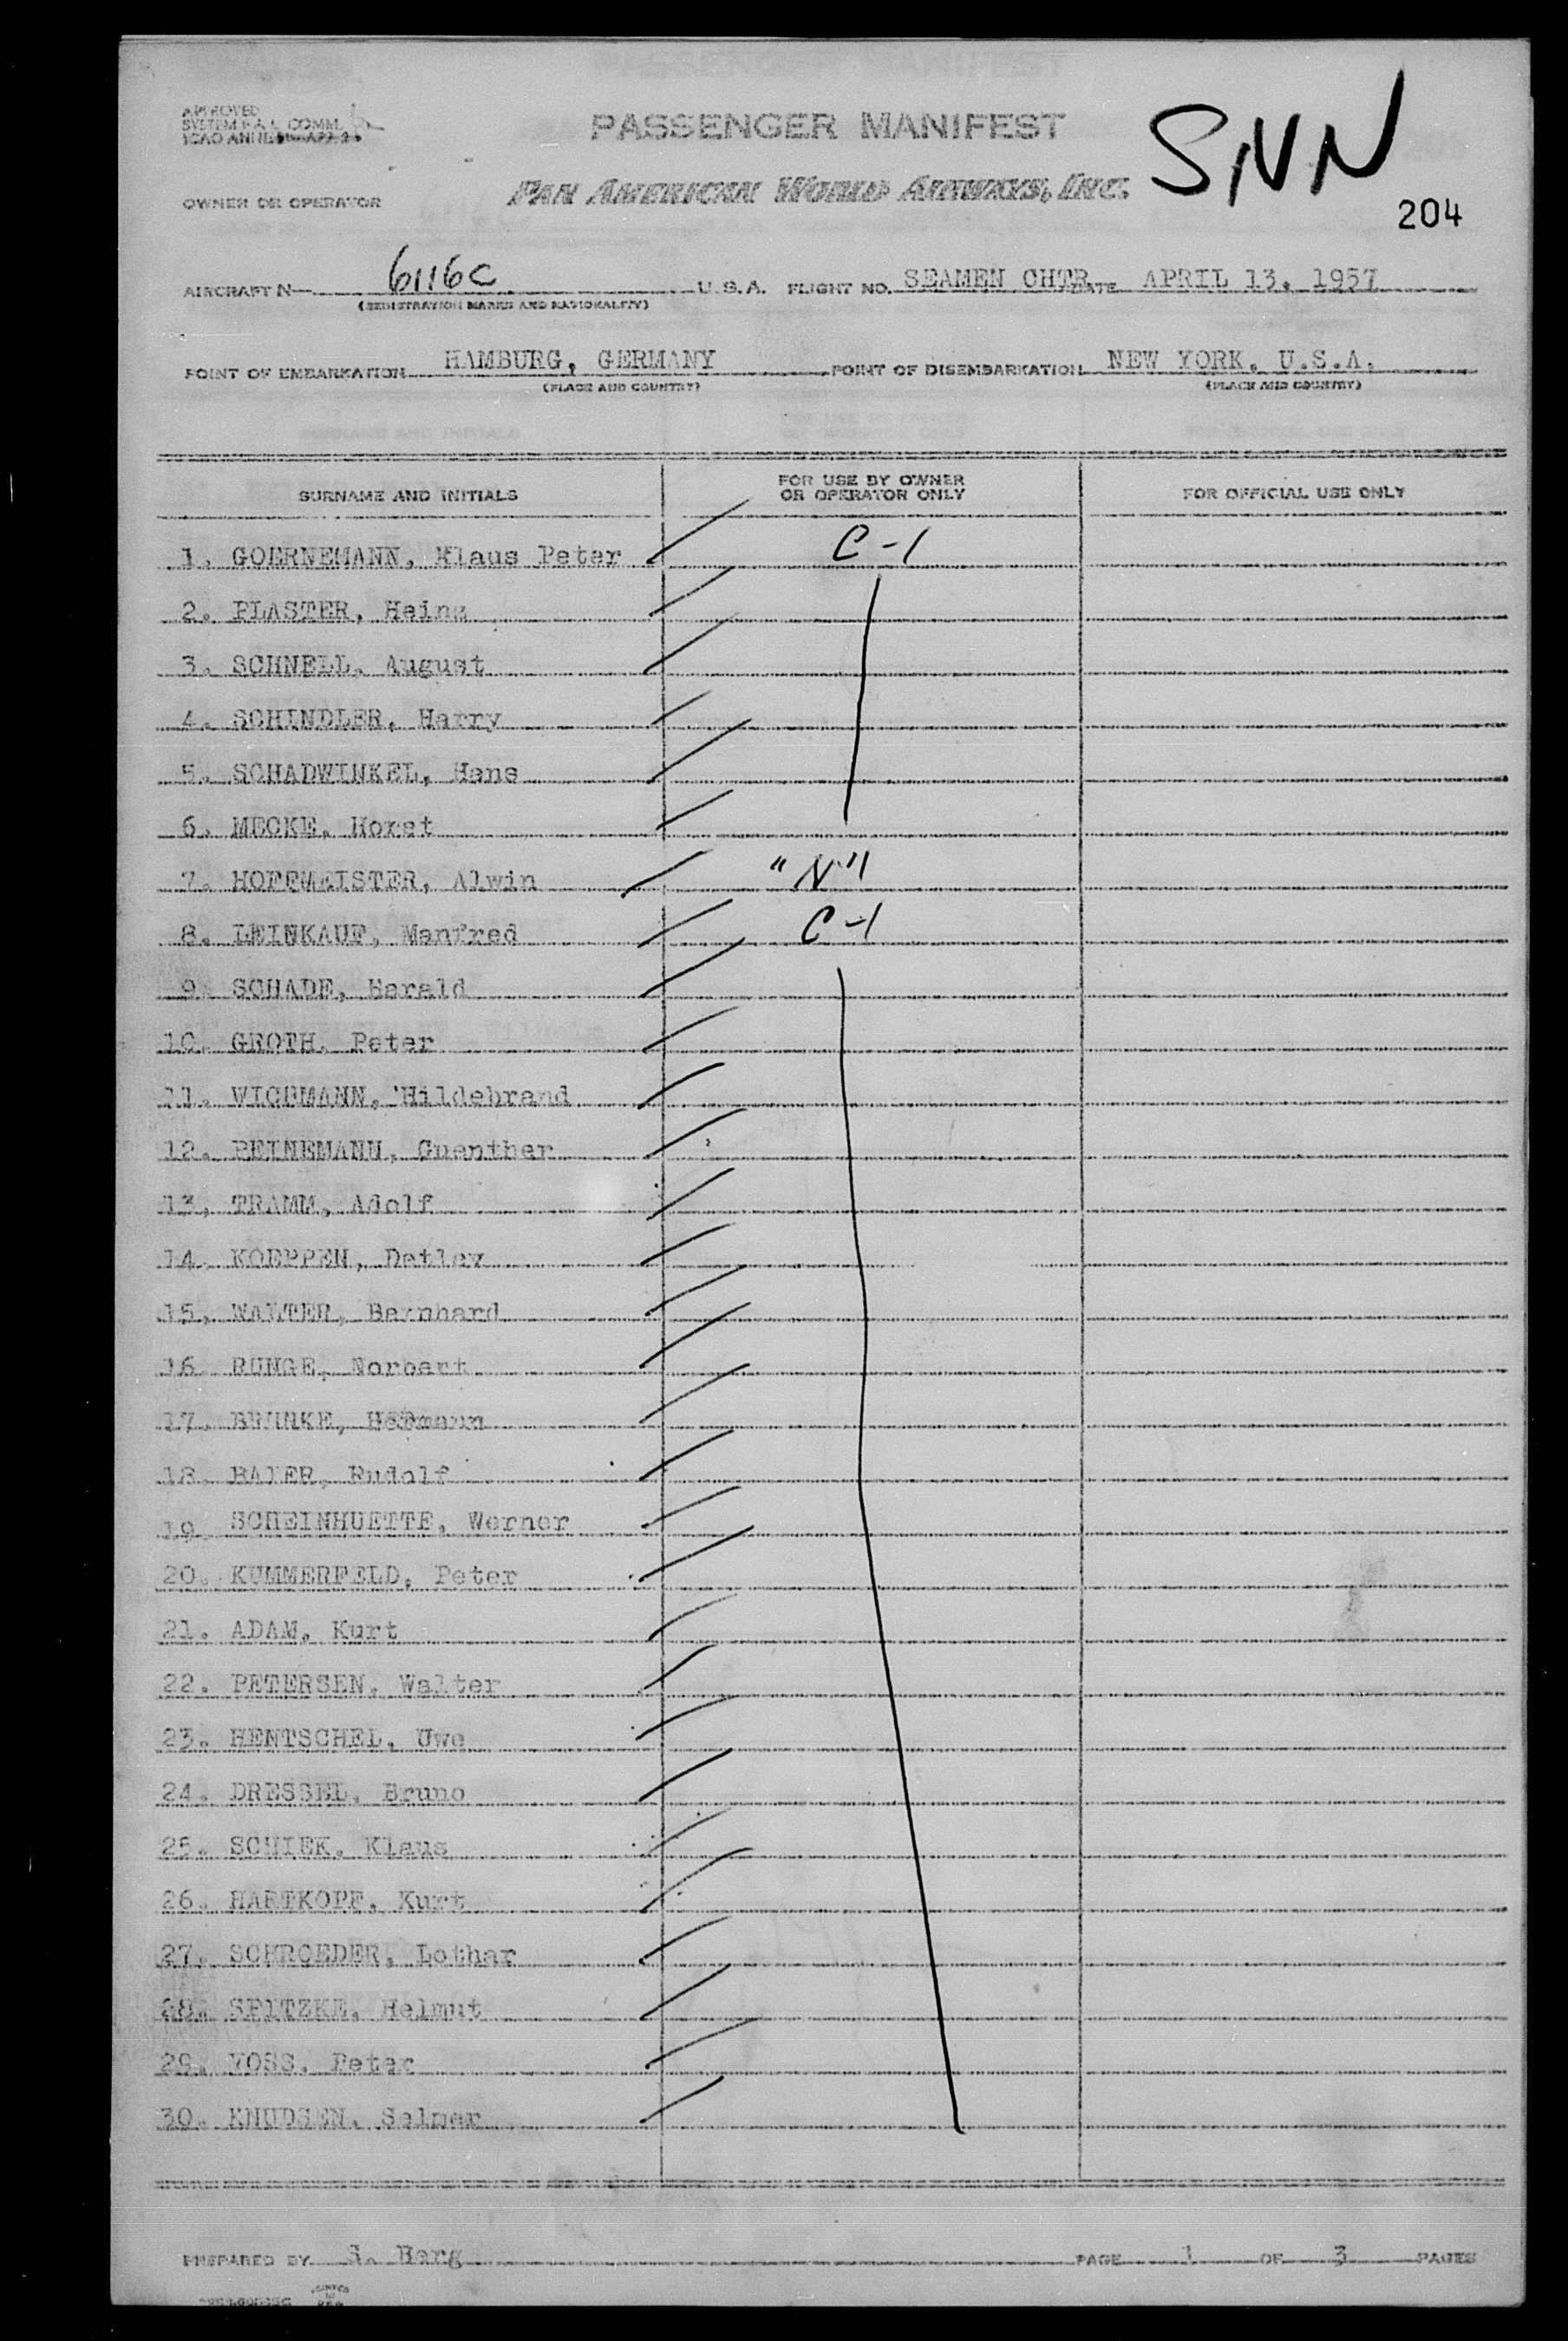 APPROVED
SYSTEM F.A.L. COMM.
ICAO
PASSENGER MANIFEST
SNN
PAN AMERICAN WORLD AIRWAYS, INC.
OWNER OR OPERATOR
204
AIRCRAFT N 6116C U.S.A. FLIGHT NO. SEAMEN CHTR DATE APRIL 13, 1957
(REGISTRATION MARKS AND NATIONALITY)
POINT OF EMBARKATION HAMBURG, GERMANY POINT OF DISEMBARKATION NEW YORK, U.S.A.
(PLACE AND COUNTRY) (PLACE AND COUNTRY)
SURNAME AND INITIALS FOR USE BY OWNER OR OPERATOR ONLY FOR OFFICIAL USE ONLY
1. GOERNEMANN, Klaus Peter C-1
2. PLASTER, Heinz
3. SCHNELL, August
4. SCHINDLER, Harry
5. SCHADWINKEL, Hans
6. MECKE, Horst
7. HOFFMEISTER, Alwin "N"
8. LEINKAUF, Manfred C-1
9. SCHADE, Harald
10. GROTH, Peter
11. WIGEMANN, Hildebrand
12. Guenther
13. TRAMM, Adolf
14. KOEPPEN, Detlev
15. WALTER, Bernhard
16. RUNGE, Norbert
17. Hermann
18. Rudolf
19. SCHEINHUETTE, Werner
20. KUMMERFELD, Peter
21. ADAM, Kurt
22. PETERSEN, Walter
23. HENTSCHEL, Uwe
24. DRESSEL, Bruno
25. SCHIEK, Klaus
26. HARTKOPF, Kurt
27. SCHROEDER, Lothar
28. SPITZKE, Helmut
29. VOSS, Peter
30. KNUDSEN, Selmer
PREPARED BY Berg PAGE 1 OF 3 PAGES
PRINTED
IN